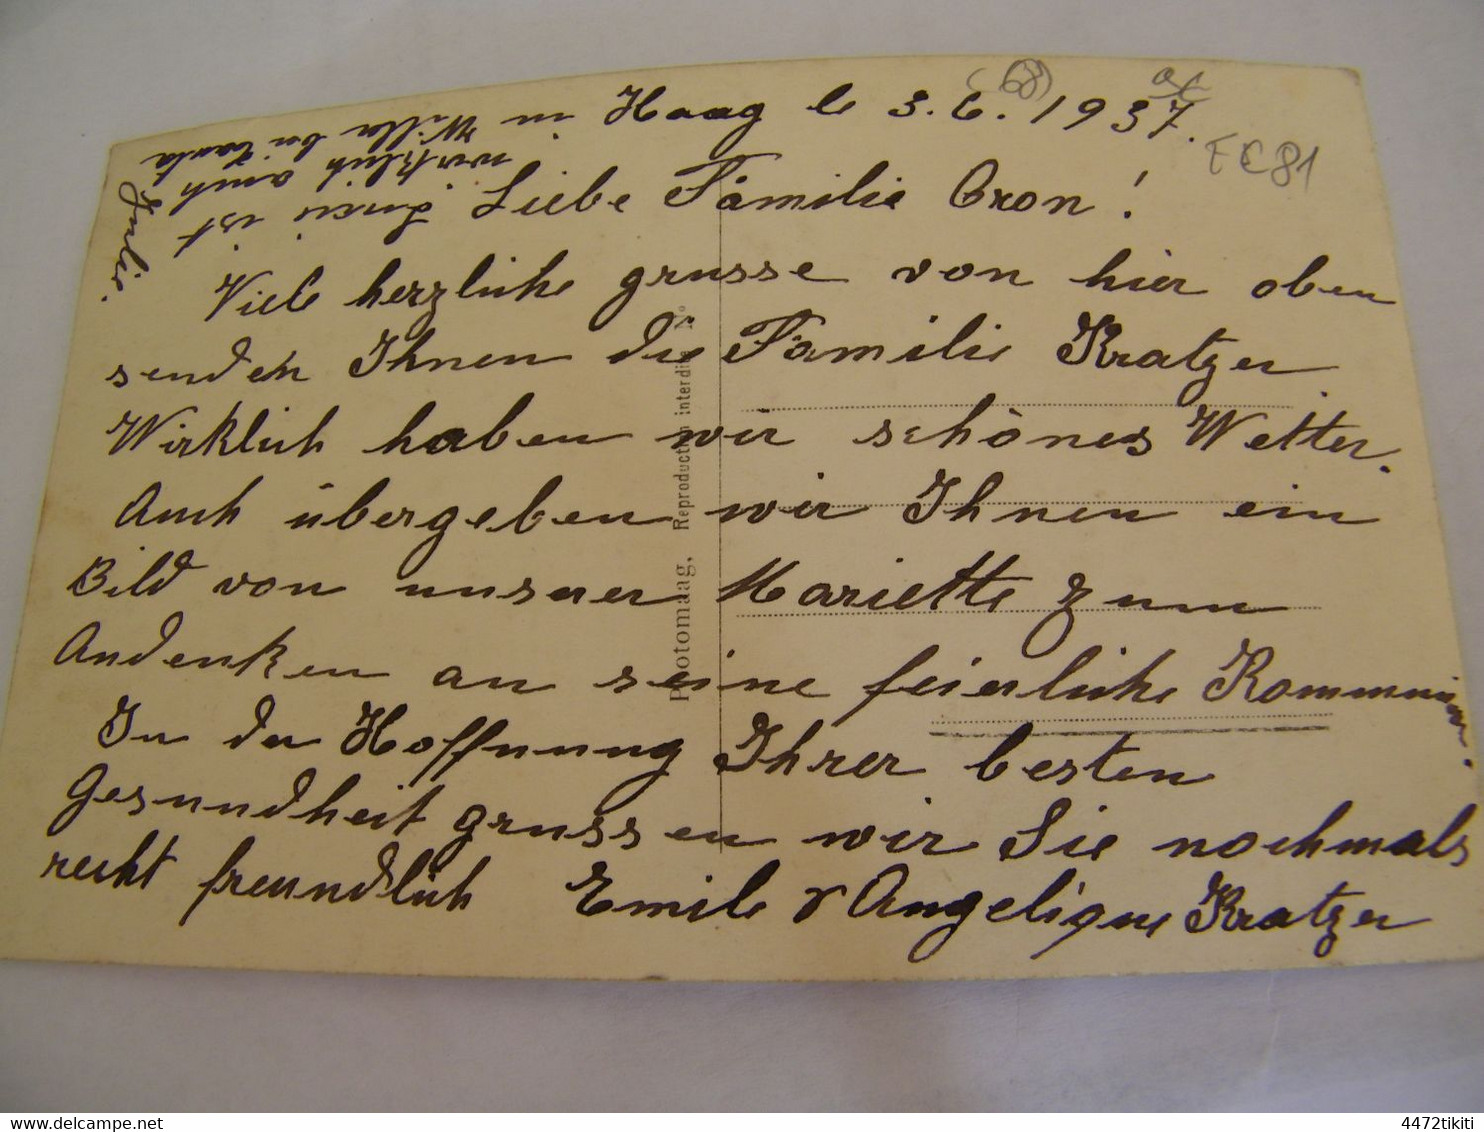 Haag le 3. 6. 1937.
(68)
EC81
Liebe Familie Cron!
Viele herzliche grusse von hier oben
senden Ihnen die Familie Kratzer
Wirklich haben wir schönes Wetter.
Auch übergeben wir Ihnen ein
Bild von unserer Mariette zum
Andenken an seine feierliche Kommunion.
In der Hoffnung Ihrer besten
Gesundheit grussen wir Sie nochmals
recht freundlich Emile & Angelique Kratzer
ist auch
wirklich in
Willer bei Tante
Julie.
Photomaag, Reproduction interdite N°
4472tikiti